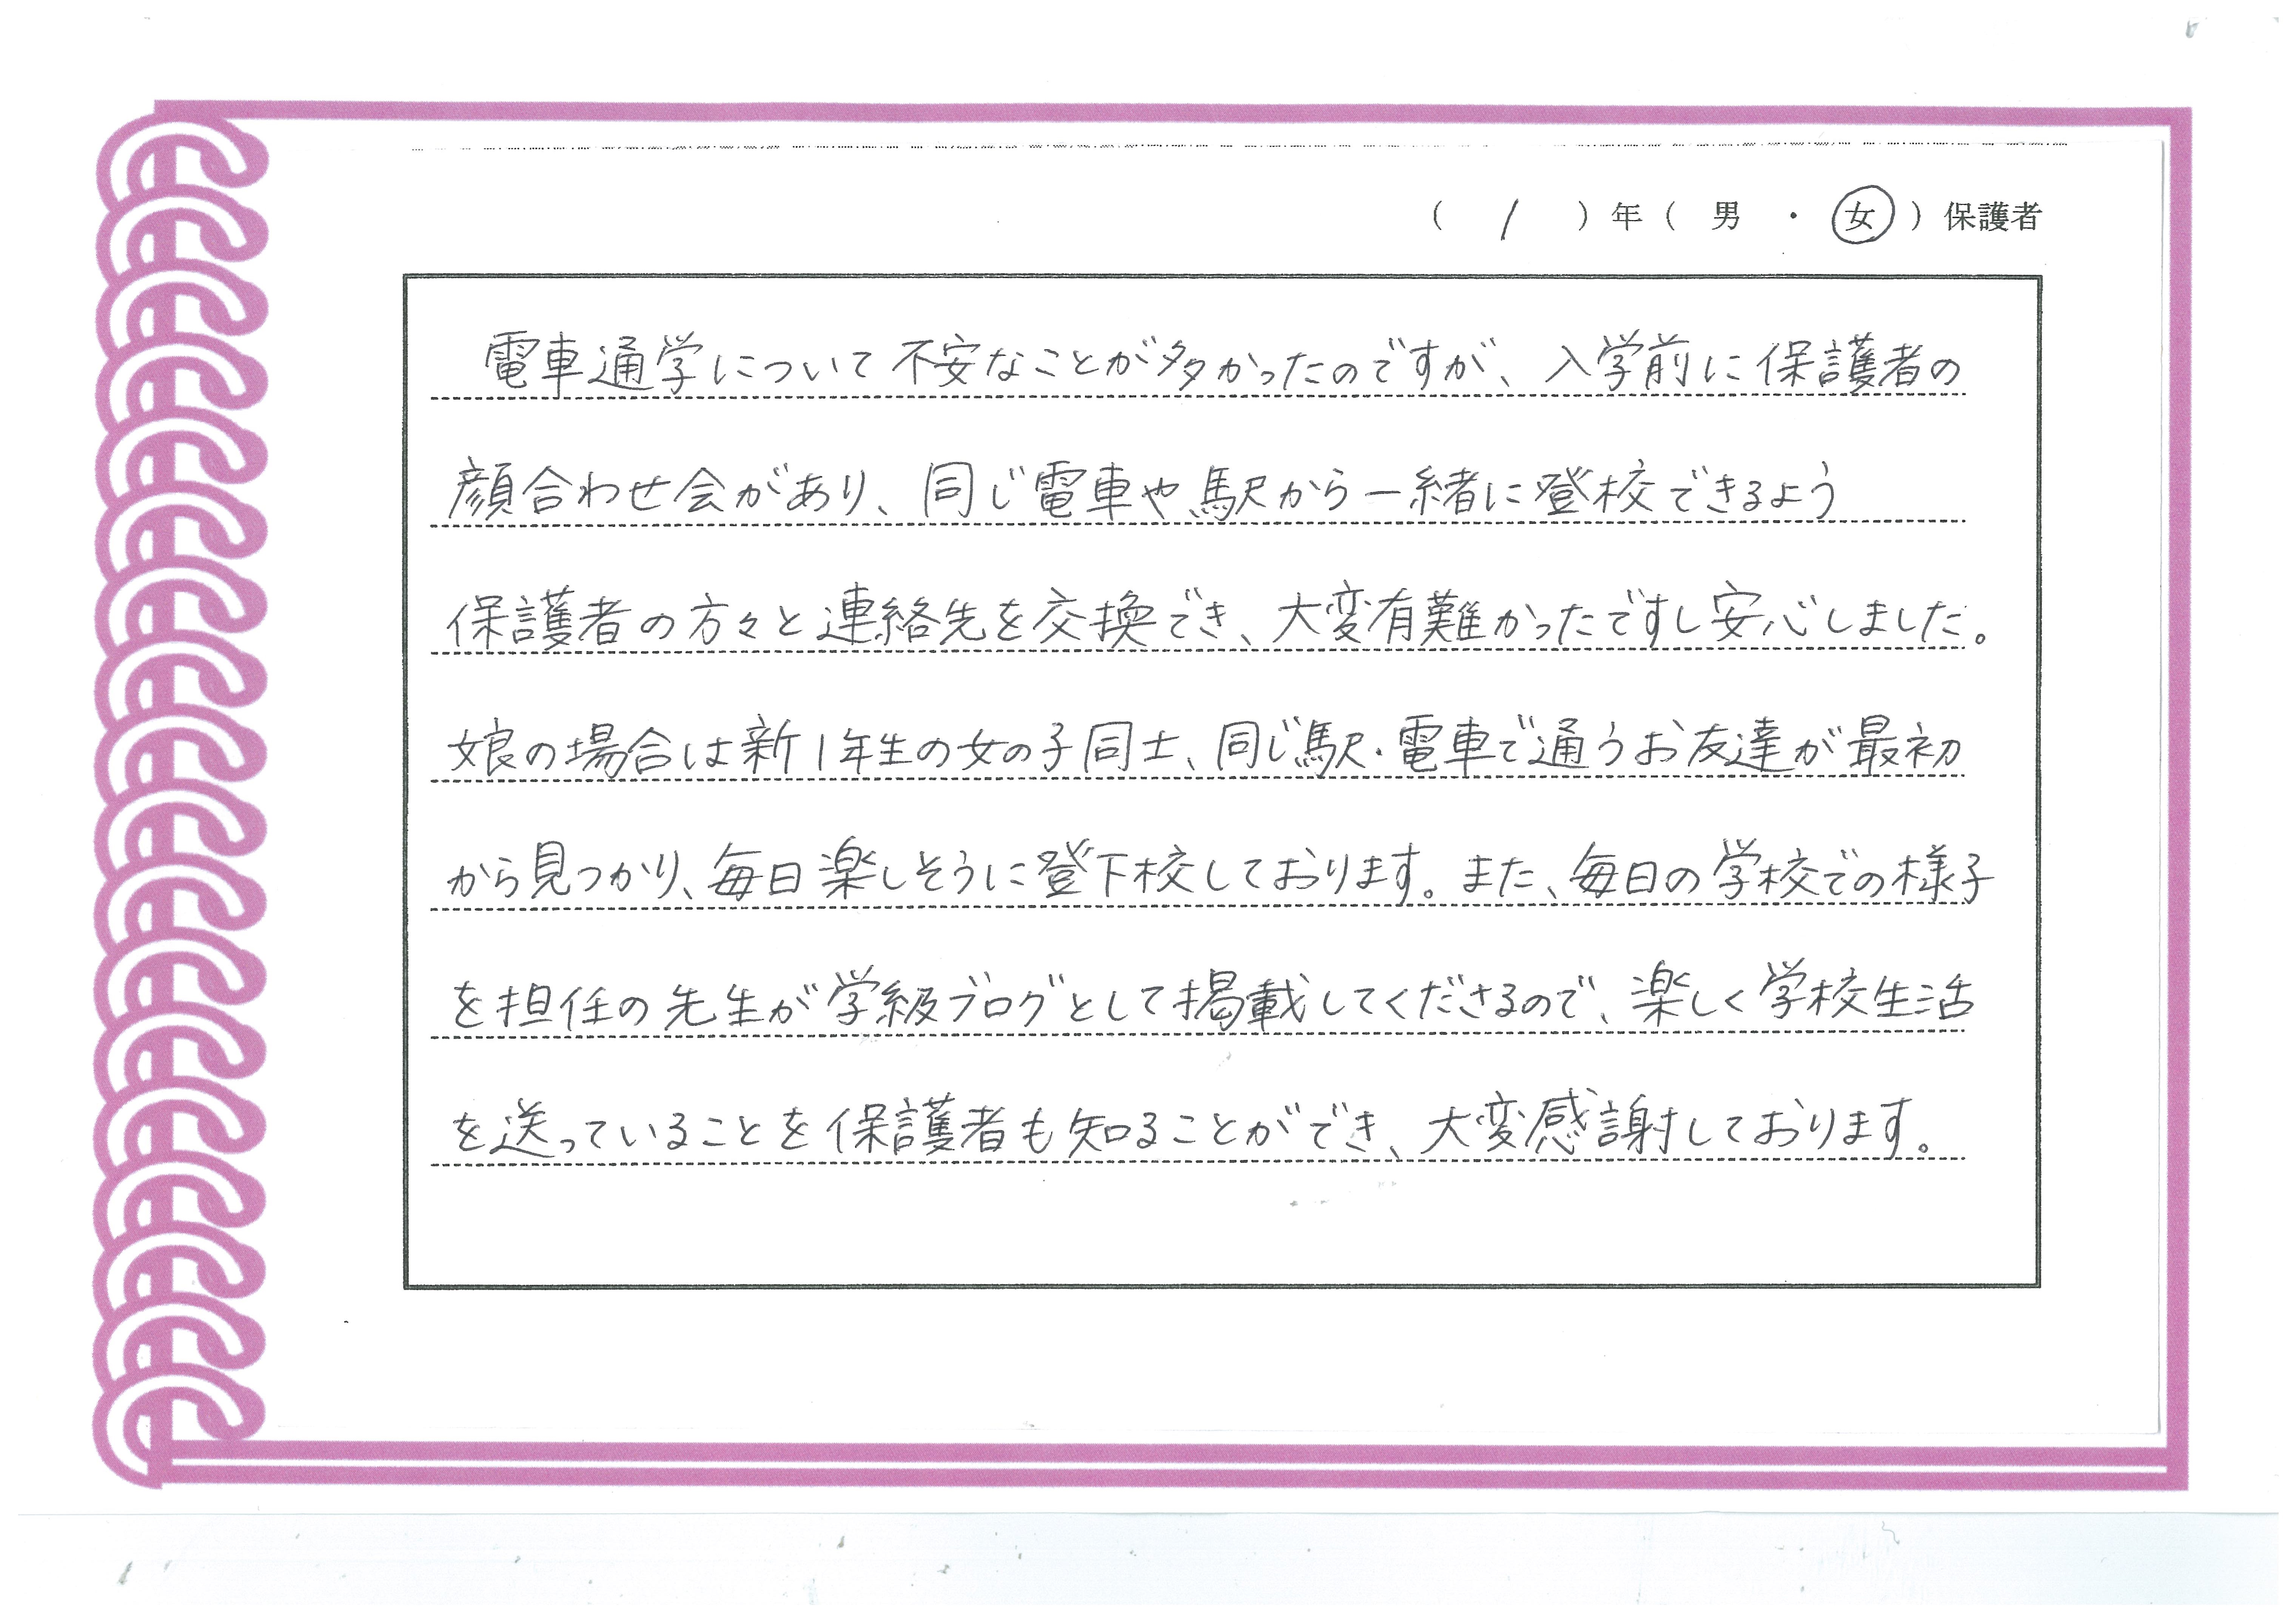 ( 1 ) 年 ( 男 ・ 女 ) 保護者
電車通学について不安なことが多かったのですが、入学前に保護者の
顔合わせ会があり、同じ電車や駅から一緒に登校できるよう
保護者の方々と連絡先を交換でき、大変有難かったですし安心しました。
娘の場合は新1年生の女の子同士、同じ駅・電車で通うお友達が最初
から見つかり、毎日楽しそうに登下校しております。また、毎日の学校での様子
を担任の先生が学級ブログとして掲載してくださるので、楽しく学校生活
を送っていることを保護者も知ることができ、大変感謝しております。